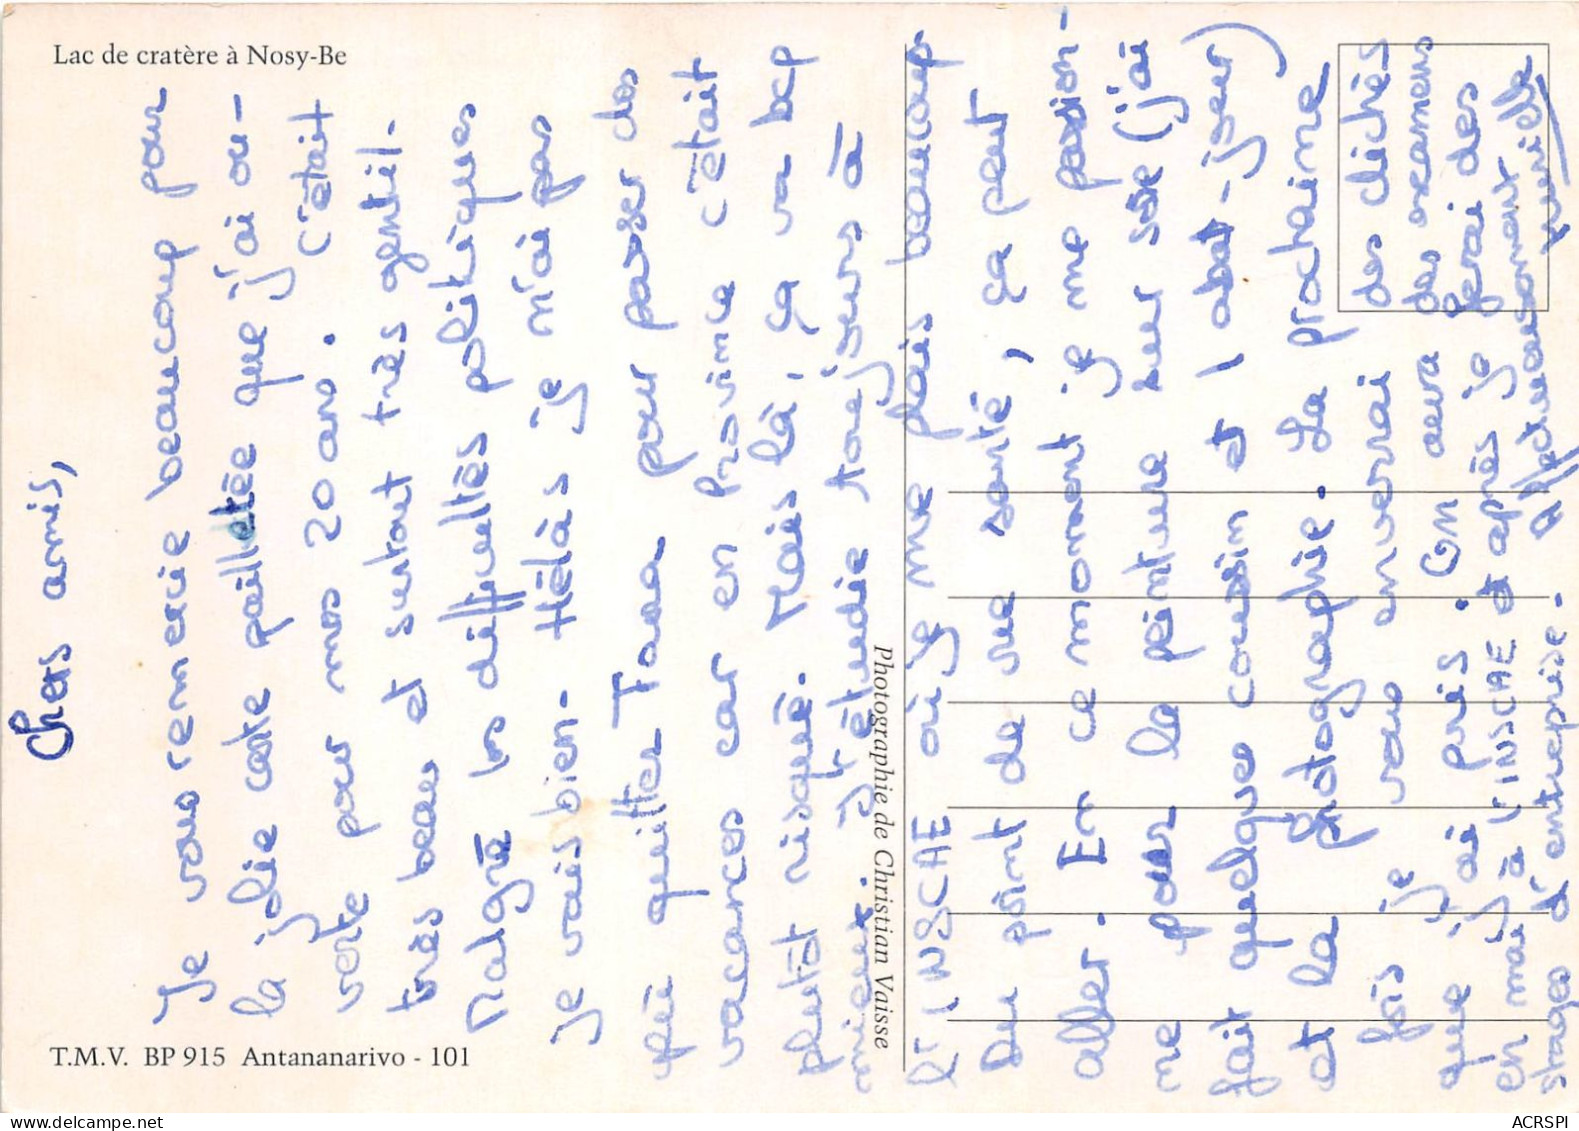 Lac de cratère à Nosy-Be
Chers amis,
Je vous remercie beaucoup pour
la jolie carte pailletée que j'ai ou-
verte pour mes 20 ans. C'était
très beau et surtout très gentil.
Malgré les difficultés politiques
je vais bien. Hélas je n'ai pas
pu quitter Tana pour passer des
vacances car en province c'était
plutôt risqué. Mais là, ça va bcp
mieux. J'étudie toujours à
l'INSCAE où je me plais beaucoup.
Du point de vue santé, ça peut
aller. En ce moment je me passion-
ne pour la peinture sur soie (j'ai
fait quelques coussins et 1 abat-jour)
et la photographie. La prochaine
fois je vous enverrai des clichés
que j'ai pris. On aura des examens
en mai à l'INSCAE et après je ferai des
stages d'entreprise. Affectueusement
T.M.V. BP 915 Antananarivo - 101
Photographie de Christian Vaisse
ACRSPI